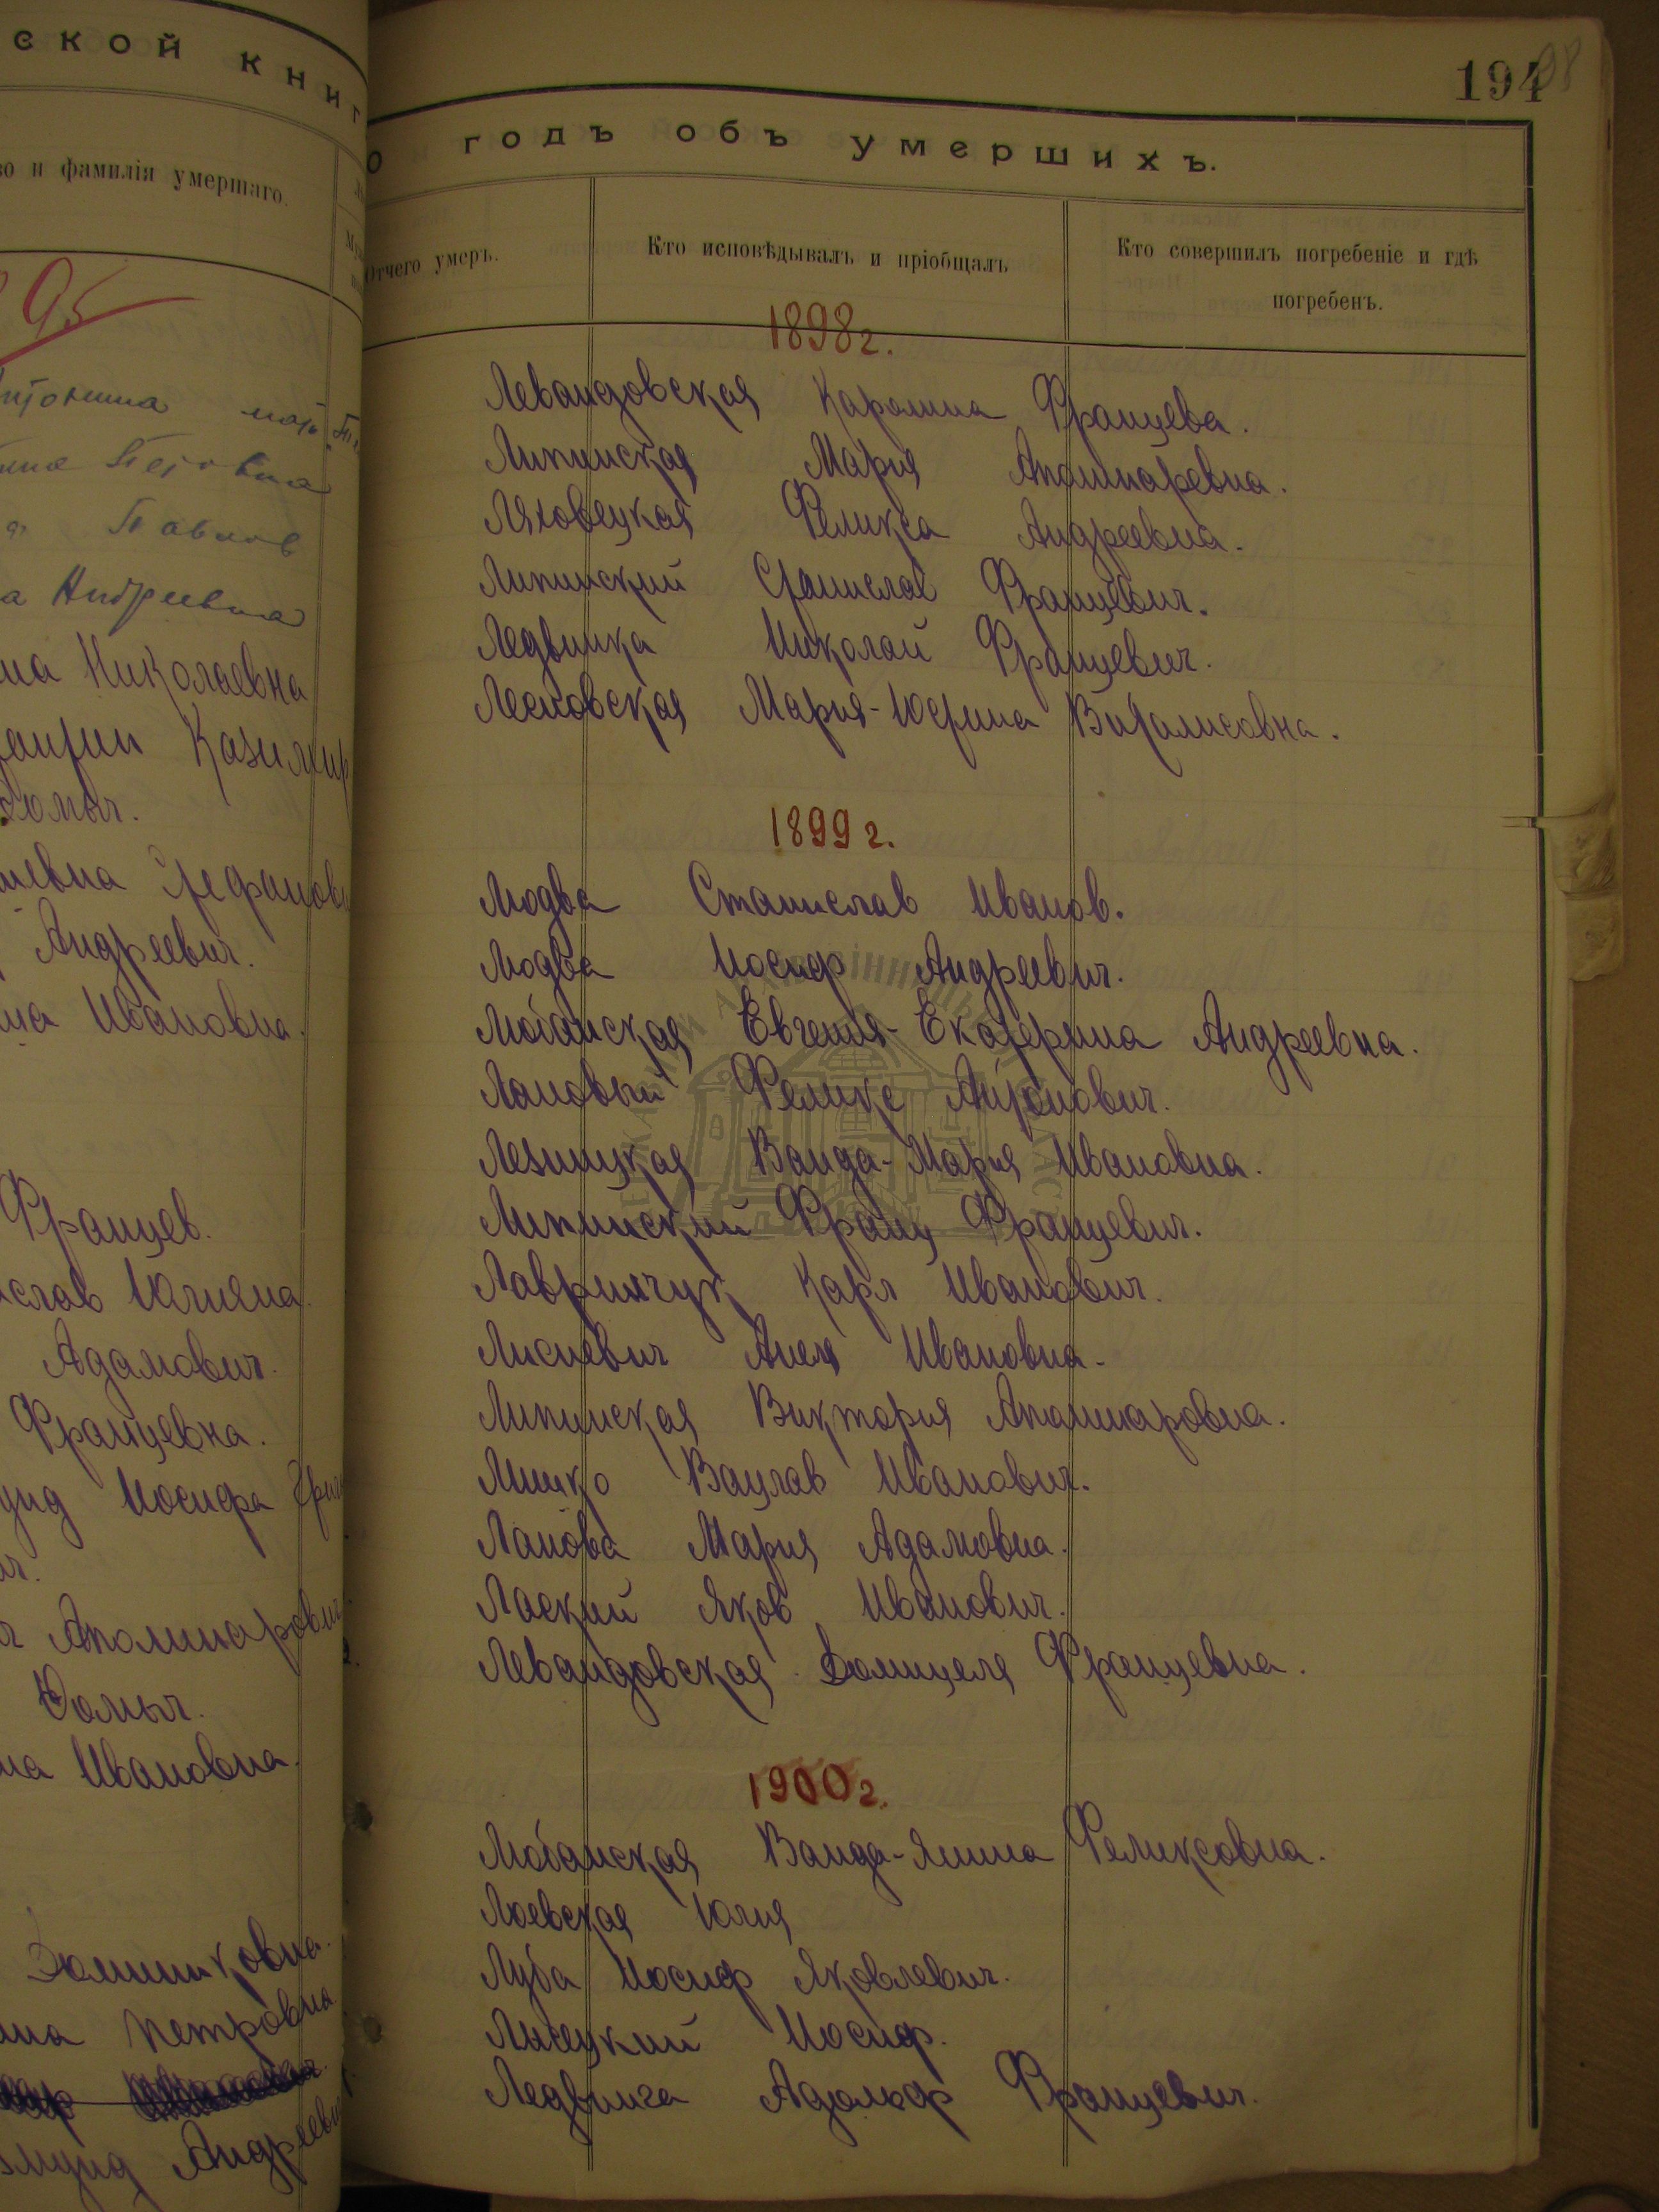 ской книг
во и фамилія умершаго.
95
Антонина
Павлов
а Андреевна
на Николаевна
Казимир
Фомич.
Андреевич.
на Ивановна.
Францев.
слав Юлияна.
Адамович.
Францевна.
Иосифа
Аполинарович
Фомич.
на Ивановна.
Доминиковна.
на Петровна
Андреевич
194
98
о годъ объ умершихъ.
Отчего умеръ.
Кто исповѣдывалъ и пріобщалъ
Кто совершилъ погребеніе и гдѣ
погребенъ.
1898 г.
Левандовская Каролина Францева.
Липинская Мария Аполинаревна.
Ляховецкая Феликса Андреевна.
Липинский Станислав Францевич.
Ледвинка Николай Францевич.
Лесковская Мария-Юстина Виталисовна.
1899 г.
Людва Станислав Иванов.
Людва Иосиф Андреевич.
Любанская Евгения-Екатерина Андреевна.
Лановый Феликс Антонович.
Лезницкая Ванда-Мария Ивановна.
Липинский Франц Францевич.
Лавринчук Карл Иванович.
Лисневич Анеля Ивановна.
Липинская Виктория Аполинаровна.
Вацлав Иванович.
Лановa Мария Адамовна.
Лаский Яков Иванович.
Левандовская Домицеля Францевна.
1900 г.
Любанская Ванда-Янина Феликсовна.
Лоевская Юлия
Луба Иосиф Яковлевич.
Лисецкий Иосиф.
Ледвинга Адольф Францевич.